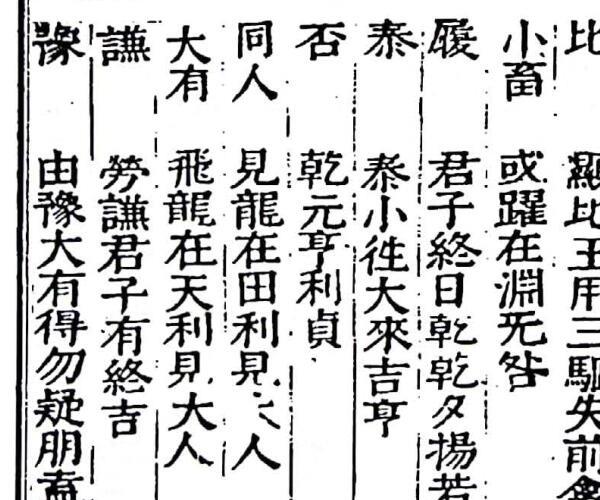 比 顯比王用三驅失前禽
小畜 或躍在淵无咎
履 君子終日乾乾夕揚若
泰 泰小往大來吉亨
否 乾元亨利貞
同人 見龍在田利見大人
大有 飛龍在天利見大人
謙 勞謙君子有終吉
豫 由豫大有得勿疑朋盍